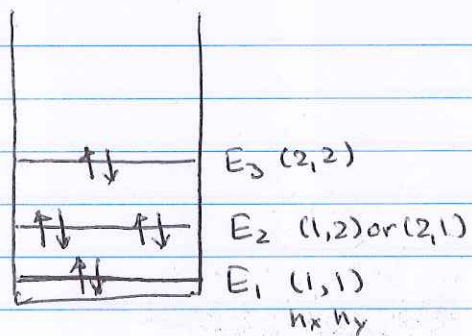 ⥮ E₃ (2,2)
⥮ ⥮ E₂ (1,2) or (2,1)
⥮ E₁ (1,1)
nₓ nᵧ